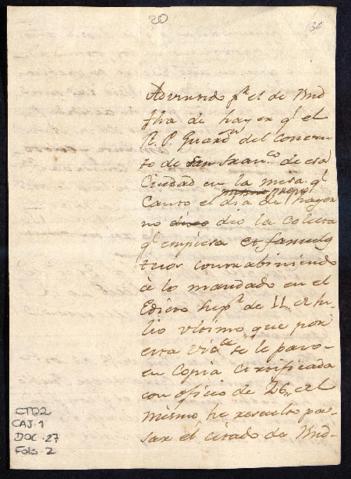 20
Advirtiendo pr. el de Vmd
fha de hayer qe. el
R. P. Guardn. del Conven
to de San Franco. de esa
Ciudad en la misa qe.
Canto el dia de hayer
no dixo dio la Colecta
qe. empieza et famulos
tuos contrabiniendo
à lo mandado en el
Edicto de 11 de Ju
lio ultimo, que por
esta se le paso
en Copia Certificada
con oficio de 26, del
mismo, he resuelto pa
sar el citado de Vmd-
CTD2
CAJ. 1
DOC. 27
Fols. 2